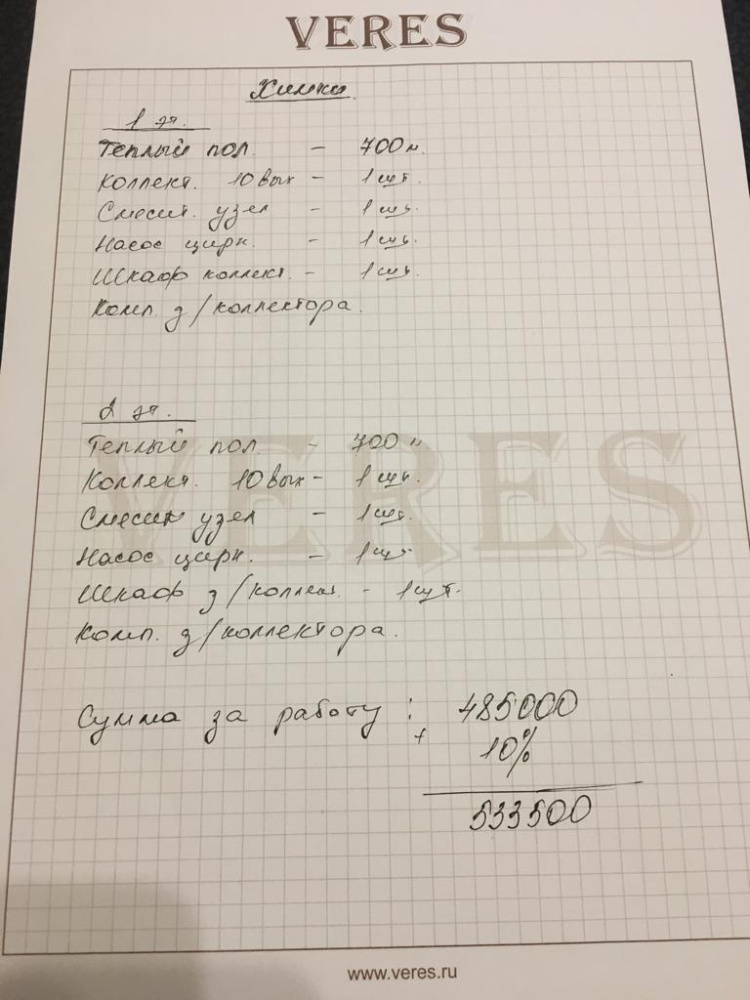 VERES
Химки
1 эт.
Теплый пол. - 700 м.
Коллект. 10 вых - 1 шт.
Смесит. узел - 1 шт.
Насос цирк. - 1 шт.
Шкаф коллект. - 1 шт.
Комп. д/коллектора.
2 эт.
Теплый пол. - 700 м
Коллект. 10 вых - 1 шт.
Смесит узел - 1 шт.
Насос цирк. - 1 шт
Шкаф д/коллект. - 1 шт.
Комп. д/коллектора.
VERES
Сумма за работу : 485000
+ 10%
533500
www.veres.ru